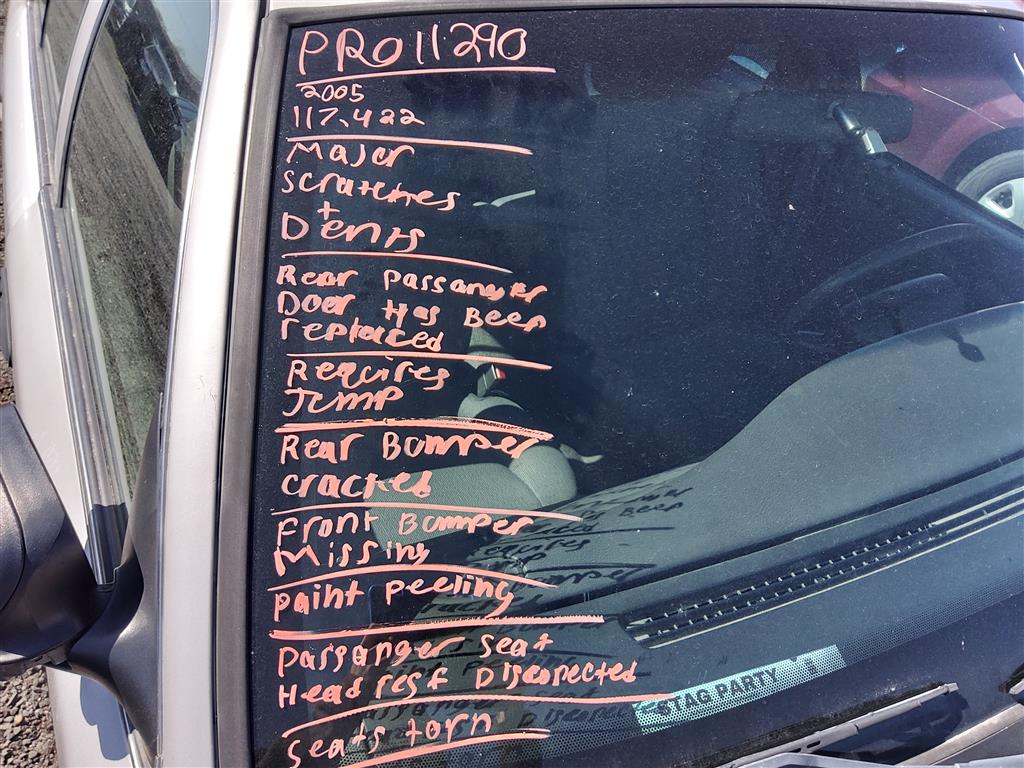 PRO11290
2005
117,422
Major
Scratches
+
Dents
Rear Passanger
Door Has Been
replaced
Requires
Jump
Rear Bumper
cracked
Front Bumper
Missing
paint peeling
passanger seat
Headrest Disconected
seats torn
STAG PARTY